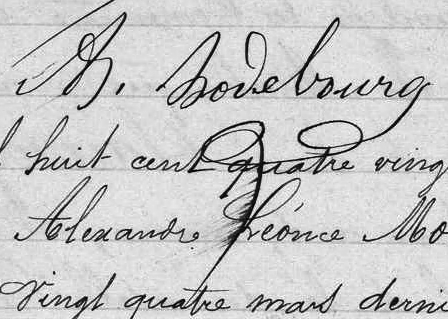 Th. Hodebourg
l huit cent quatre ving
Alexandre Léonce Mo
Vingt quatre mars derni